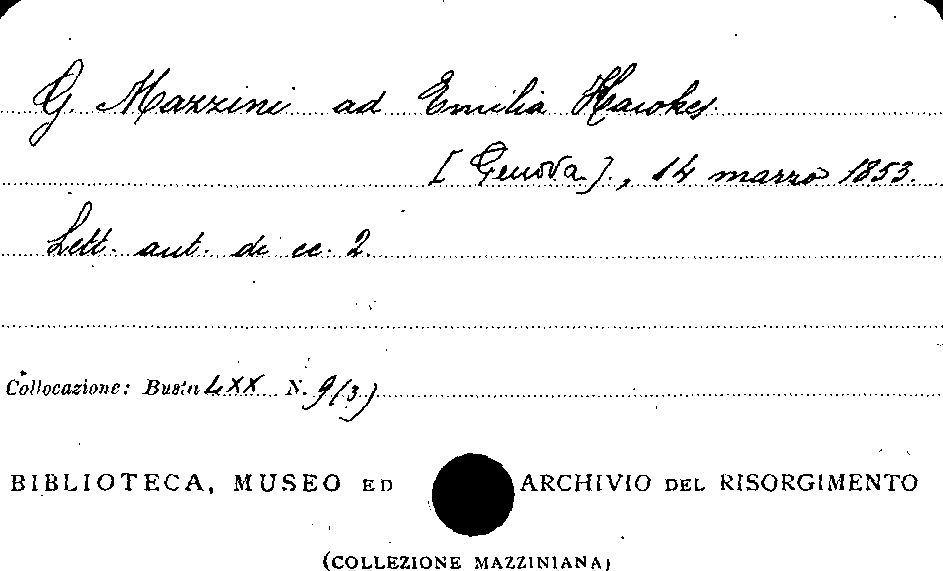 G. Mazzini ad Emilia Hawkes.
[Genova]., 14 marzo 1853.
Lett. aut. di cc. 2.
Collocazione: Busta LXX N. 9(3)
BIBLIOTECA, MUSEO ED ARCHIVIO DEL RISORGIMENTO
(COLLEZIONE MAZZINIANA)